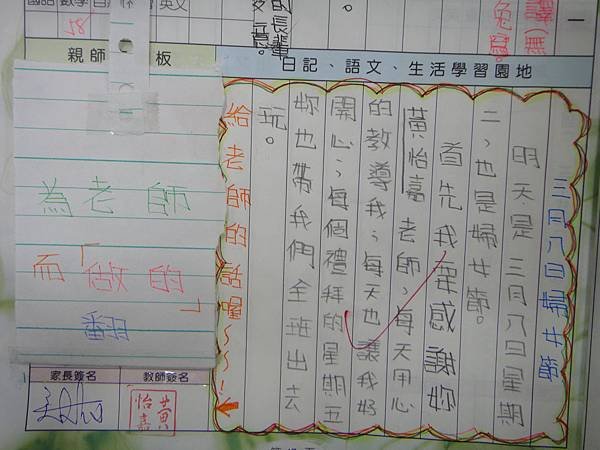 國語
數學
英文
58
的長輩
譯(無
一
親師
板
日記、語文、生活學習園地
三月八日婦女節
明天是三月八日星期
二,也是婦女節。
首先我要感謝妳
黃怡嘉老師,每天用心
的教導我,每天也讓我好
開心,每個禮拜的星期五
妳也帶我們全班出去
玩。
給老師的話喔~~!
為老師
而「做的」
翻
家長簽名
教師簽名
黃怡嘉